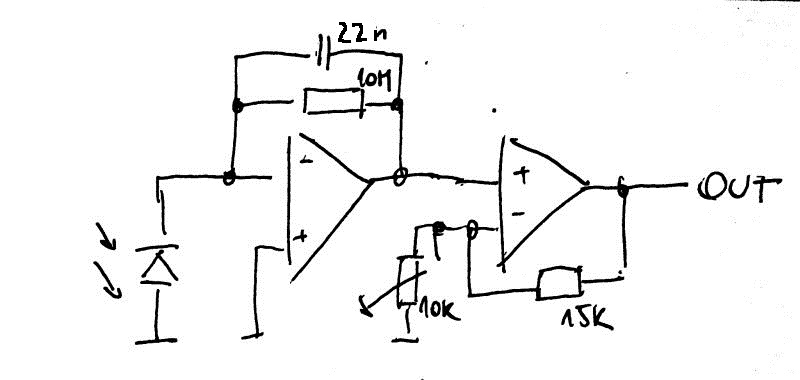 22n
10M
-
+
+
-
OUT
10K
15K